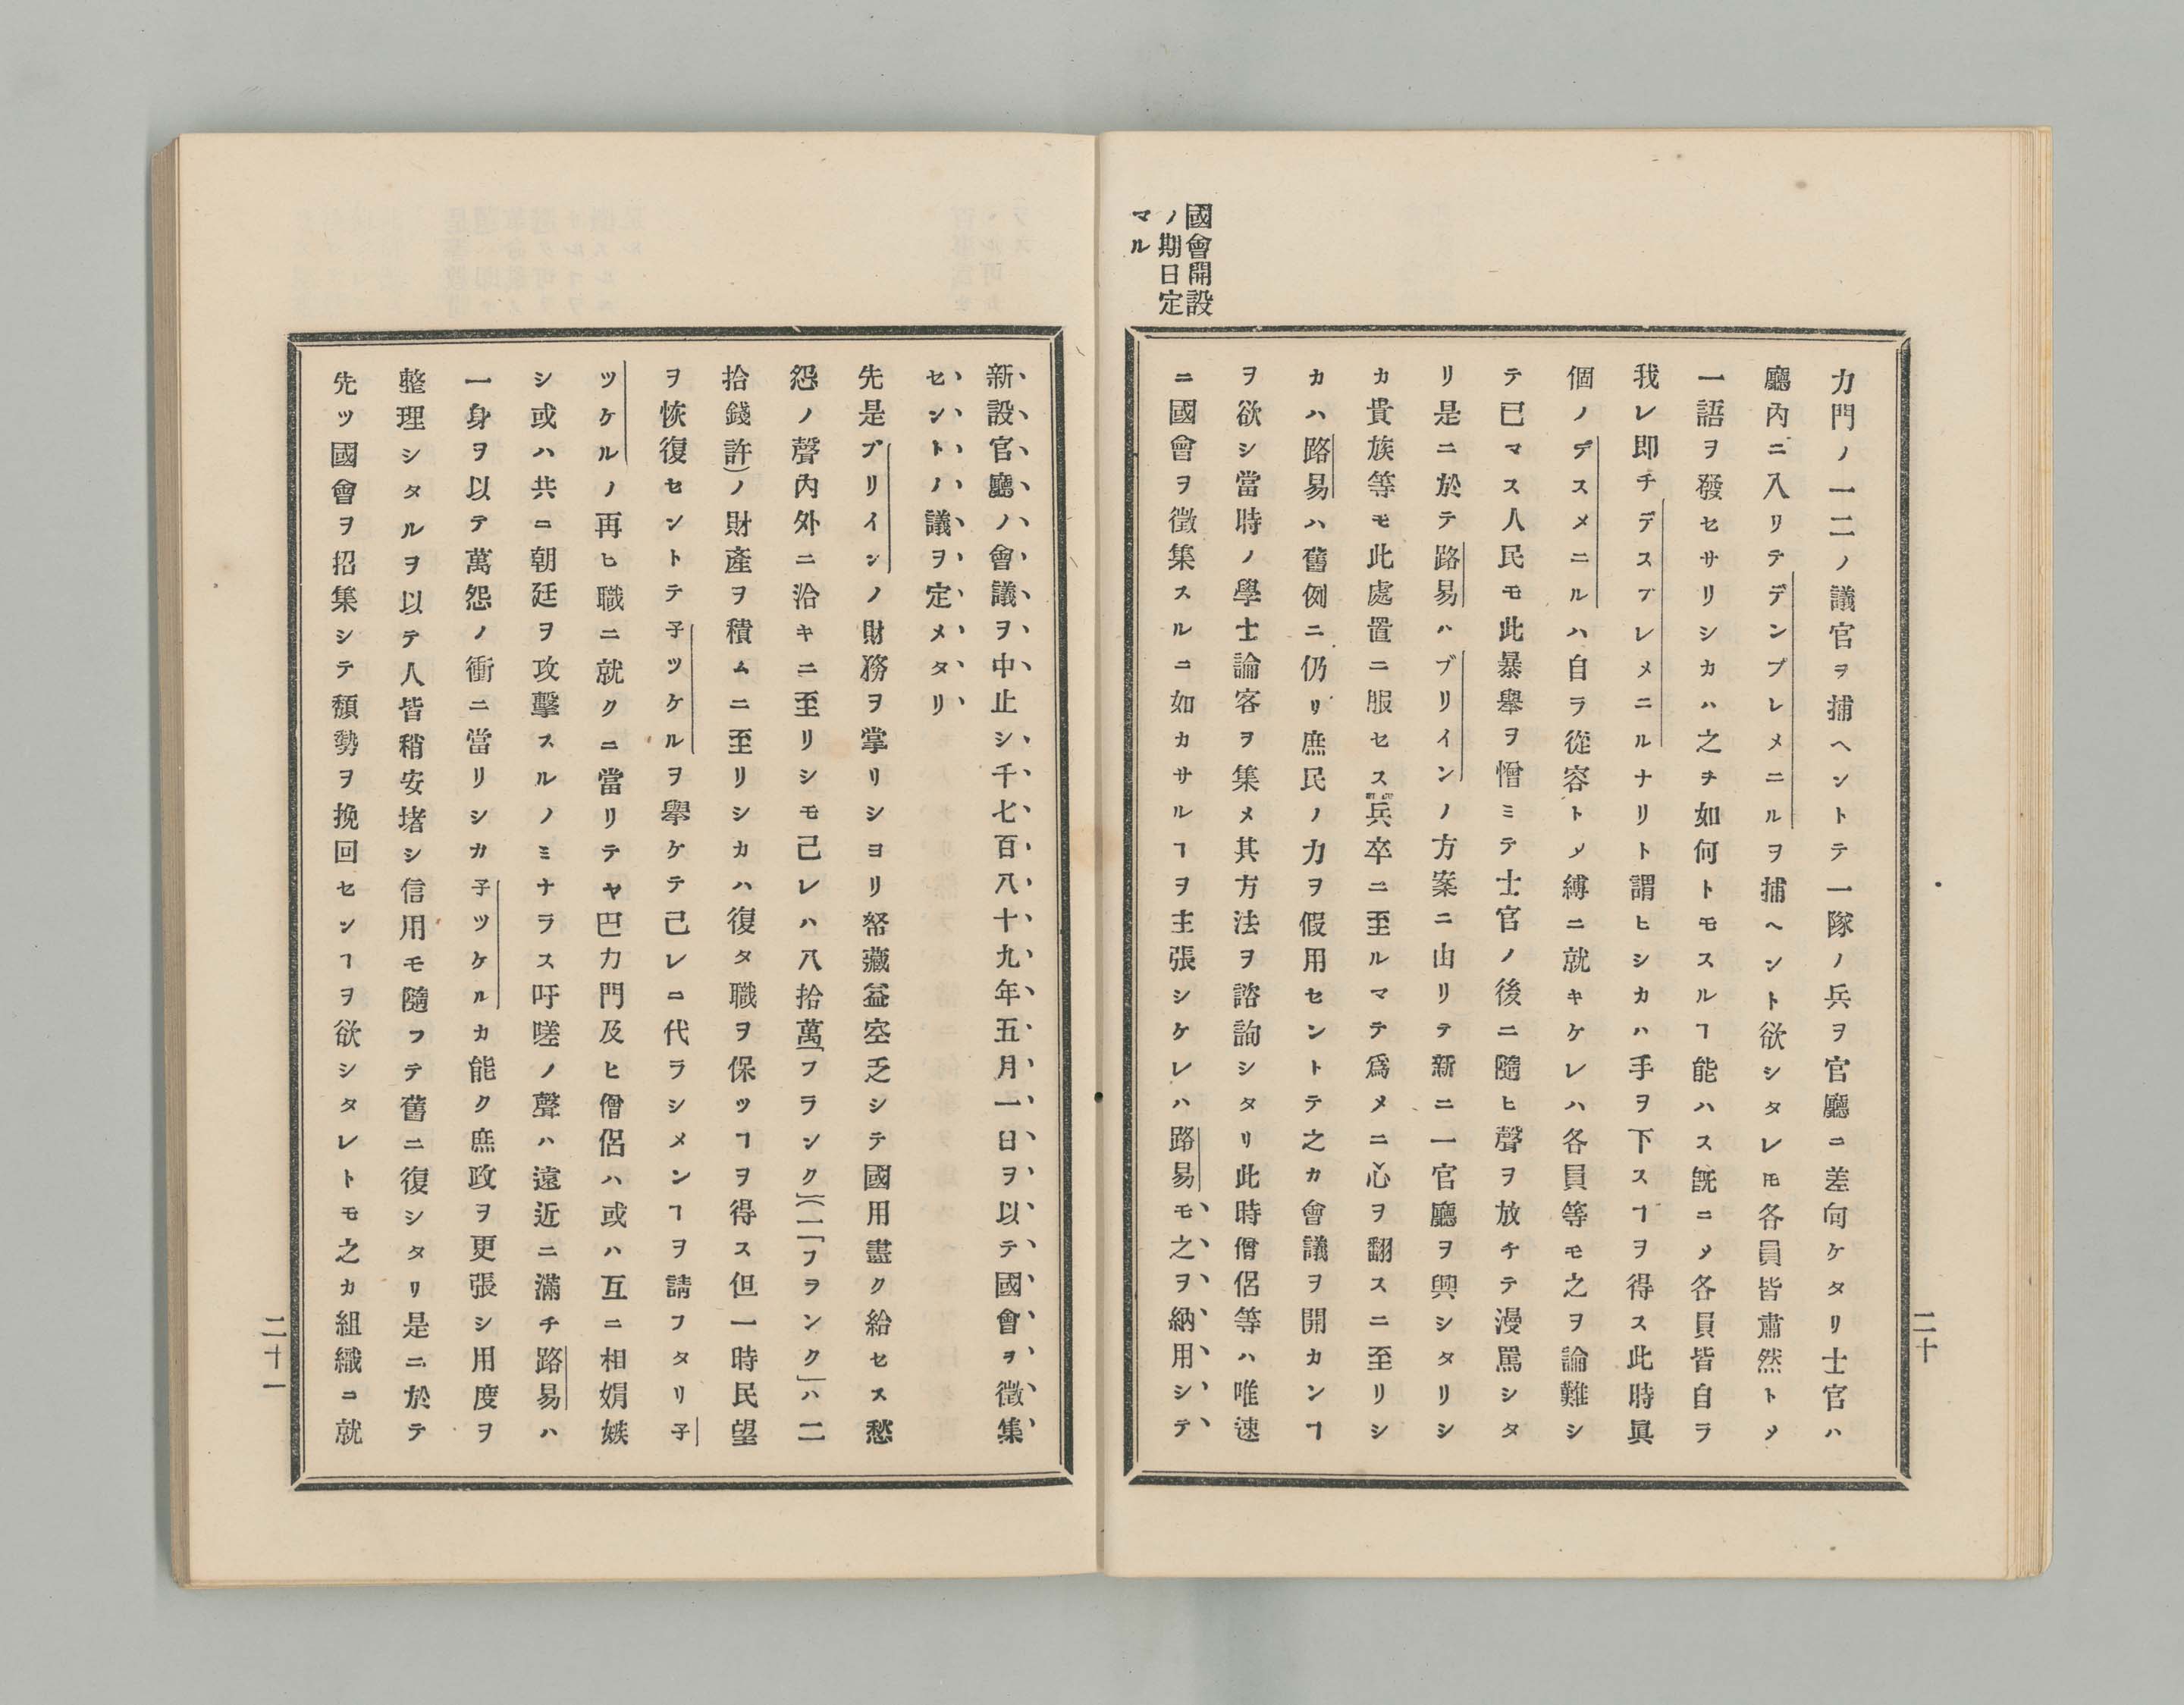 國會開設
ノ期日定
マル
力門ノ一二ノ議官ヲ捕ヘントテ一隊ノ兵ヲ官廳ニ差向ケタリ士官ハ
廳內ニ入リテデンプレメニルヲ捕ヘント欲シタレ𪜈各員皆肅然トメ
一語ヲ發セサリシカハ之ヲ如何トモスルヿ能ハス旣ニメ各員皆自ラ
我レ即チデスプレメニルナリト謂ヒシカハ手ヲ下スヿヲ得ス此時眞
個ノデスメニルハ自ラ從容トメ縛ニ就キケレハ各員等モ之ヲ論難シ
テ已マス人民モ此暴擧ヲ憎ミテ士官ノ後ニ隨ヒ聲ヲ放チテ漫罵シタ
リ是ニ於テ路易ハブリインノ方案ニ由リテ新ニ一官廳ヲ興シタリシ
カ貴族等モ此處置ニ服セス兵卒ニ至ルマテ爲メニ心ヲ翻スニ至リシ
カハ路易ハ舊例ニ仍リ庶民ノ力ヲ假用セントテ之カ會議ヲ開カンヿ
ヲ欲シ當時ノ學士論客ヲ集メ其方法ヲ諮詢シタリ此時僧侶等ハ唯速
ニ國會ヲ徵集スルニ如カサルヿヲ主張シケレハ路易モ之ヲ納用シテ
二十
新設官廳ノ會議ヲ中止シ千七百八十九年五月一日ヲ以テ國會ヲ徵集
セントノ議ヲ定メタリ
先是ブリインノ財務ヲ掌リシヨリ帑藏益空乏シテ國用盡ク給セス愁
怨ノ聲內外ニ洽キニ至リシモ己レハ八拾萬「フランク」(一「フランク」ハ二
拾錢許)ノ財產ヲ積ムニ至リシカハ復タ職ヲ保ツヿヲ得ス但一時民望
ヲ恢復セントテ子ツケルヲ擧ケテ己レニ代ラシメンヿヲ請フタリ子
ツケルノ再ヒ職ニ就クニ當リテヤ巴力門及ヒ僧侶ハ或ハ互ニ相娟嫉
シ或ハ共ニ朝廷ヲ攻擊スルノミナラス吁嗟ノ聲ハ遠近ニ滿チ路易ハ
一身ヲ以テ萬怨ノ衝ニ當リシカ子ツケルカ能ク庶政ヲ更張シ用度ヲ
整理シタルヲ以テ人皆稍安堵シ信用モ隨フテ舊ニ復シタリ是ニ於テ
先ツ國會ヲ招集シテ頹勢ヲ挽回センヿヲ欲シタレトモ之カ組織ニ就
二十一